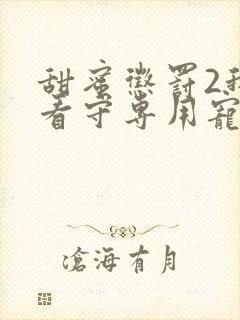 甜蜜懲罰2我
看守專用寵
滄海有月